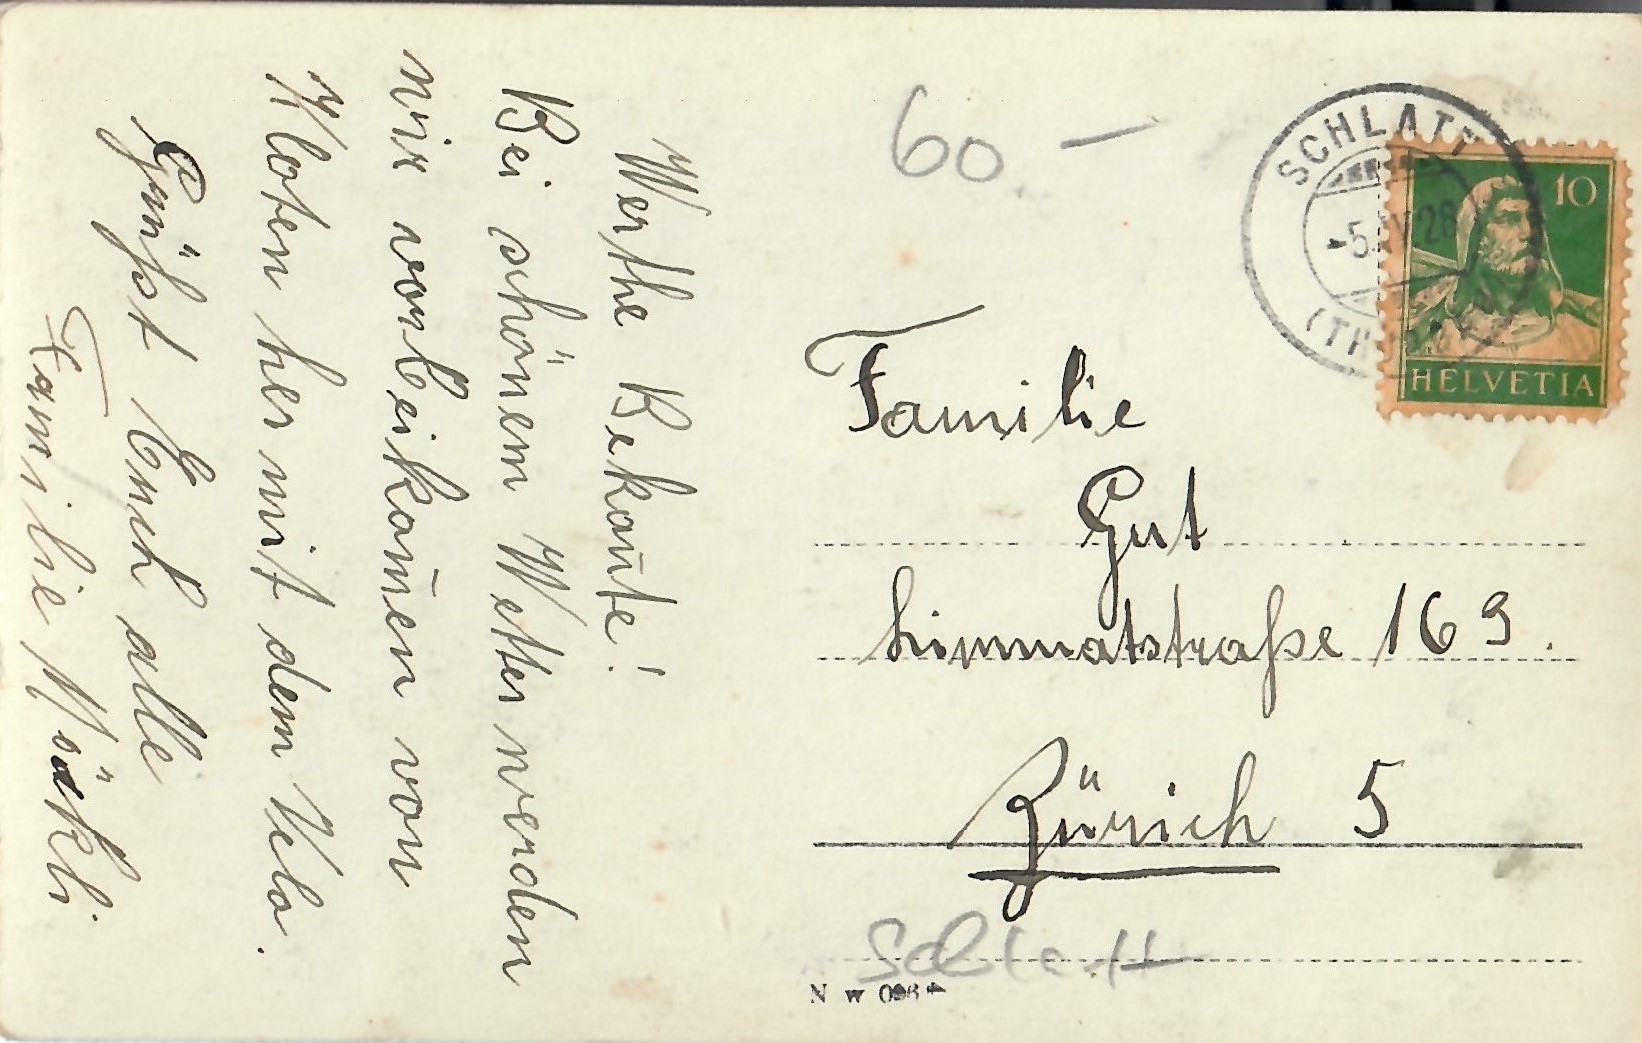 Werthe Bekan̄te!
Bei schönem Wetter werden
wir vorbeikom̄en von
Kloten her mit dem Velo.
Grüßt Euch alle
Familie Möckli
60 —
SCHLATT
10
HELVETIA
Familie
Gut
Limmatstraße 169.
Zürich 5
Schlatt
N w